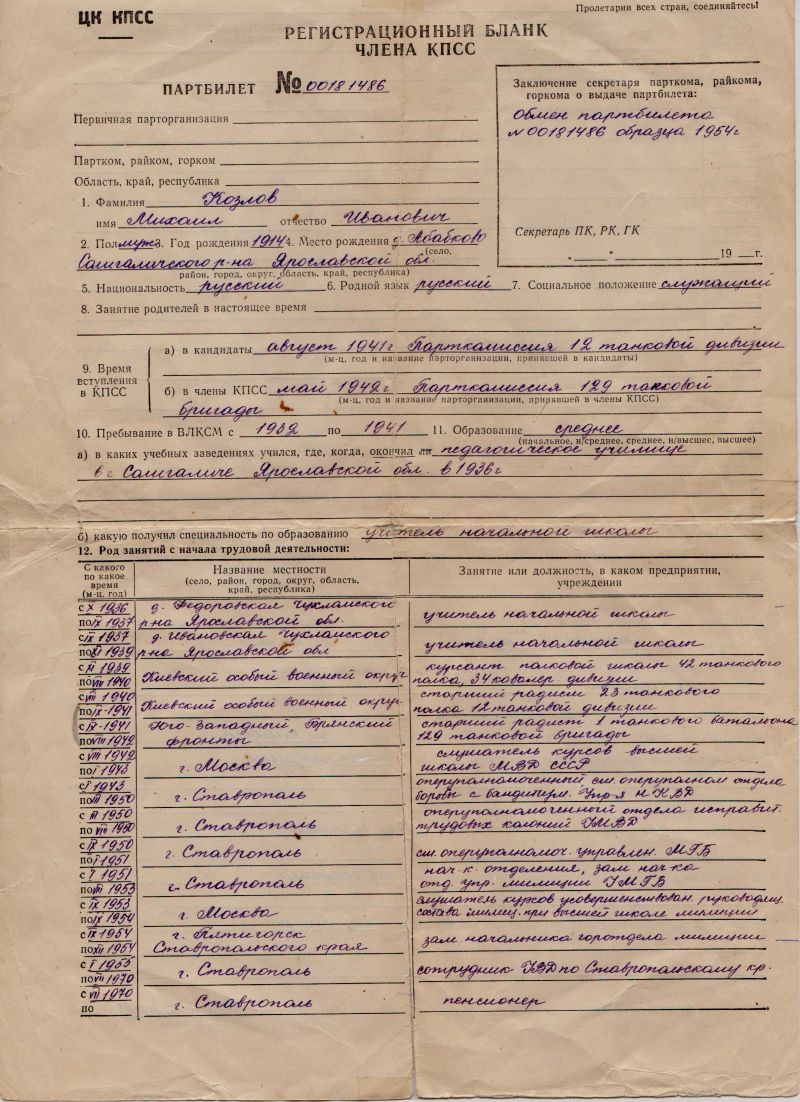 Пролетарии всех стран, соединяйтесь!
ЦК КПСС
РЕГИСТРАЦИОННЫЙ БЛАНК
ЧЛЕНА КПСС
ПАРТБИЛЕТ № 00181486
Заключение секретаря парткома, райкома,
горкома о выдаче партбилета:
Обмен партбилета
N 00181486 образца 1954г
Секретарь ПК, РК, ГК
„ “ 19 г.
Первичная парторганизация
Партком, райком, горком
Область, край, республика
1. Фамилия Козлов
имя Михаил отчество Иванович
2. Пол муж 3. Год рождения 1914 4. Место рождения д.
(село,
Солигаличского р-на Ярославской обл.
район, город, округ, область, край, республика)
5. Национальность русский 6. Родной язык русский 7. Социальное положение служащий
8. Занятие родителей в настоящее время
9. Время
вступления
в КПСС
а) в кандидаты август 1941г Парткомиссия 12 танковой дивизии
(м-ц, год и название парторганизации, принявшей в кандидаты)
б) в члены КПСС май 1942г Парткомиссия 129 танковой
(м-ц, год и название парторганизации, принявшей в члены КПСС)
бригады
10. Пребывание в ВЛКСМ с 1932 по 1941 11. Образование среднее
(начальное, н/среднее, среднее, н/высшее, высшее)
а) в каких учебных заведениях учился, где, когда, окончил ли педагогическое училище
в г Солигаличе Ярославской обл. в 1936г
б) какую получил специальность по образованию учитель начальной школы
12. Род занятий с начала трудовой деятельности:
С какого
по какое
время
(м-ц, год)
Название местности
(село, район, город, округ, область,
край, республика)
Занятие или должность, в каком предприятии,
учреждении
с X 1936 д. Федоровская Чухломского
по IX 1937 р-на Ярославской обл. учитель начальной школы
с IX 1937 д. Ивановская Чухломского
по XI 1939 р-на Ярославской обл учитель начальной школы
с XI 1939 курсант полковой школы 42 танкового
по VIII 1940 Киевский особый военный округ полка, 34 кавалер. дивизии
с VIII 1940 старший радист 23 танкового
по IX-1941 Киевский особый военный округ полка 12 танковой дивизии
с IX-1941 Юго-Западный, Брянский старший радист 1 танкового баталиона
по VIII 1942 фронты 129 танковой бригады
с VIII 1942 слушатель курсов высшей
по I 1943 г. Москва школы МВД СССР
с I 1943 оперуполномоченный см. оперуполном отдела
по III 1950 г. Ставрополь борьбы с бандитизм. Упр-я НКВД
с III 1950 оперуполномоченный отдела исправит.
по VIII 1950 г. Ставрополь трудовых колоний УМВД
с IX 1950
по I 1951 г. Ставрополь см. оперуполномоч. управлен. МГБ
с I 1951 нач-к отделения, зам нач-ка
по VIII 1953 г. Ставрополь отд. упр. милиции УМГБ
с IX 1953 слушатель курсов усовершенствован. руководящ.
по IX 1954 г. Москва состава милиц. при высшей школе милиции
с IX 1954 г. Пятигорск
по XII 1954 Ставропольского края зам начальника горотдела милиции
с I 1955
по VII 1970 г. Ставрополь сотрудник УВД по Ставропольскому кр.
с VII 1970
по г. Ставрополь пенсионер